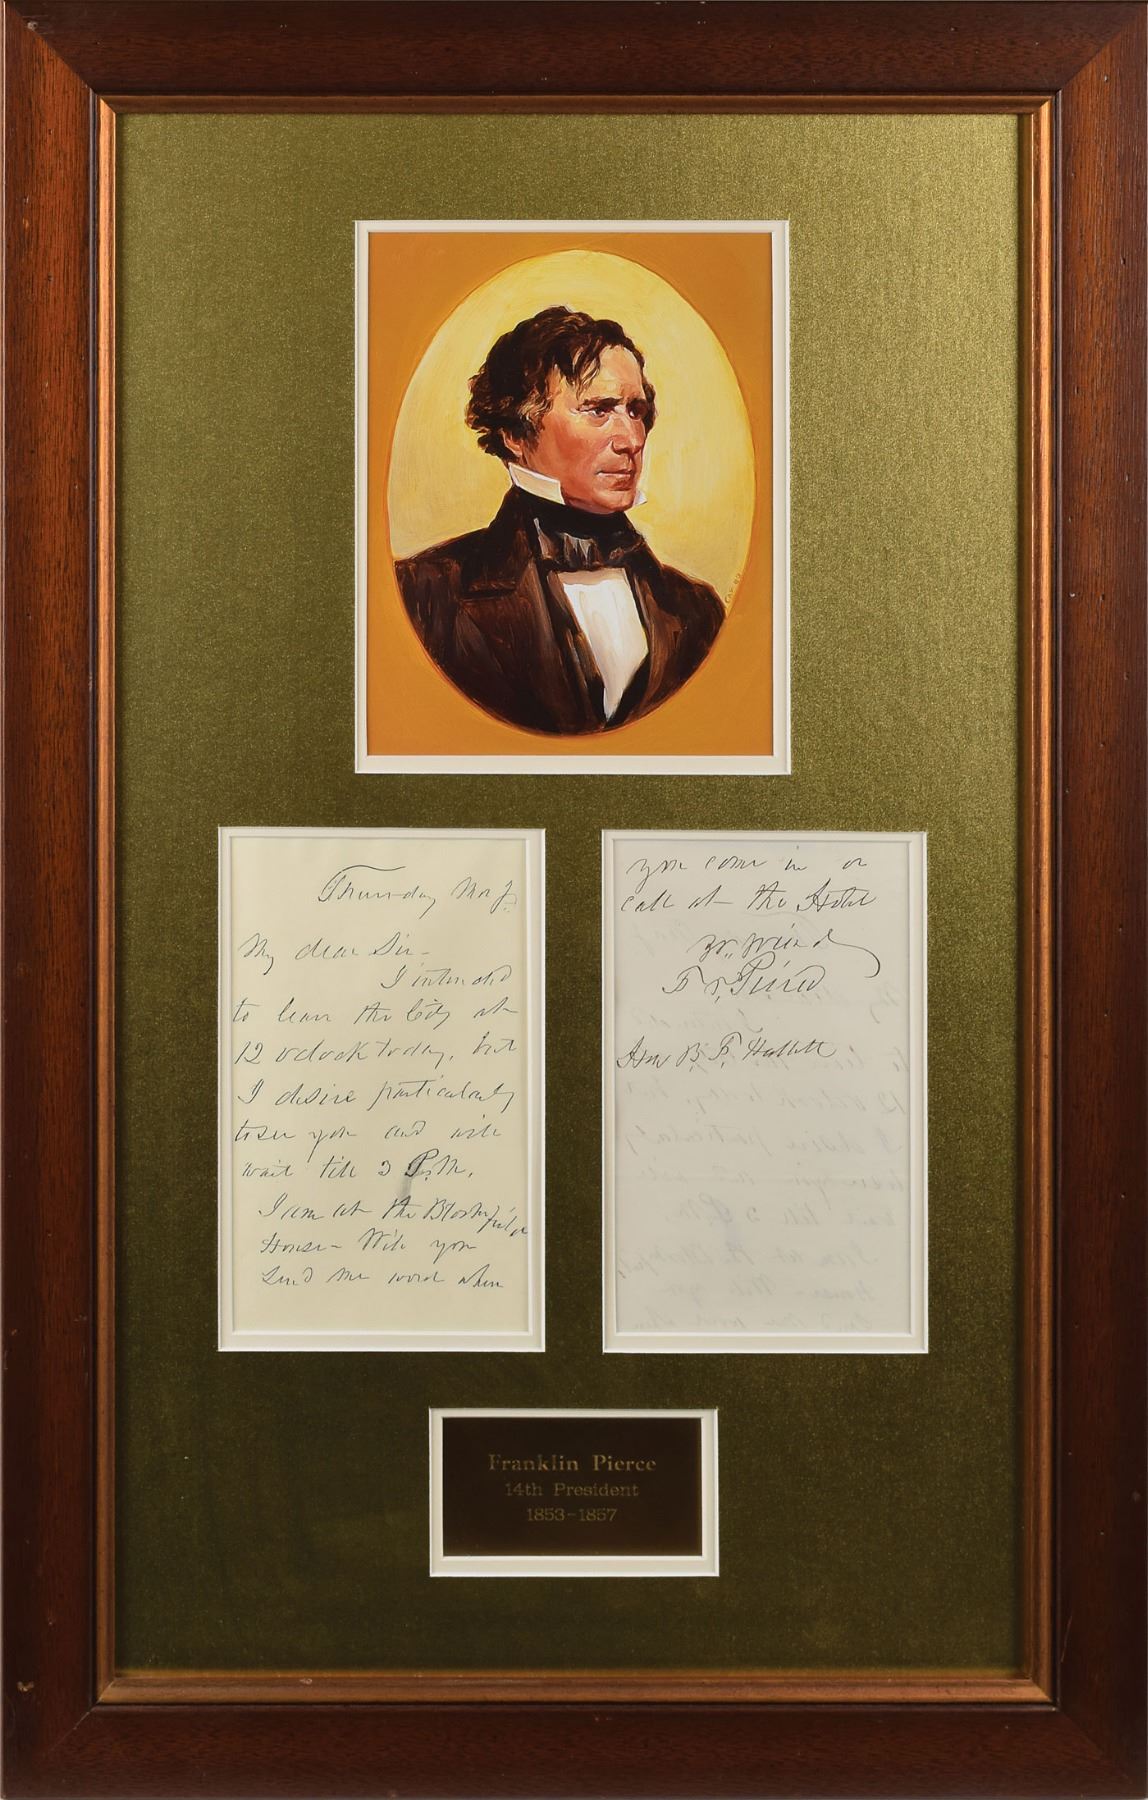 Thursday Mor^g
My dear Sir-
I intended
to leave the City at
12 o'clock today, but
I desire particularly
to see you and will
wait till 3 P.M.
I am at the Bloomfield
House - Will you
send me word when
you come in or
call at the Hotel
Yr. friend
Fr. Pierce
Hon B. F. Hallett
Franklin Pierce
14th President
1853-1857